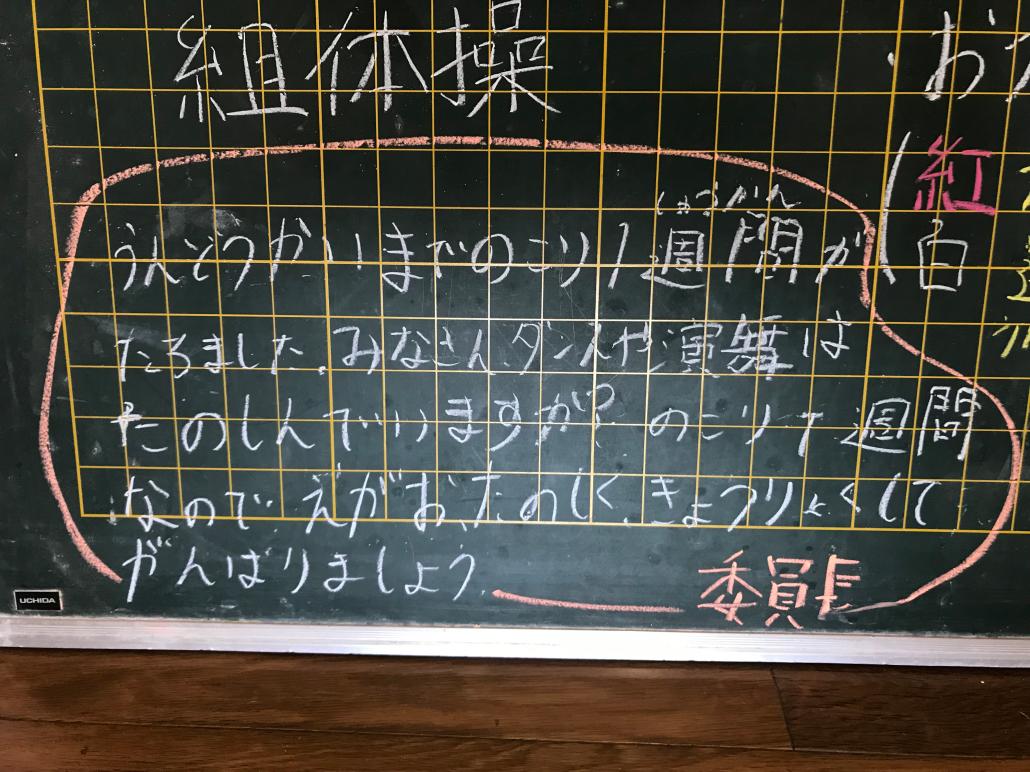 組体操
お
紅
白
しゅうかん
うんどうかいまでのこり1週間が
たろました。みなさん、ダンスや演舞は
たのしんでいますか?のこり1週間
なので、えがお、たのしく、きょうりょくして
がんばりましょう。
委員長
UCHIDA